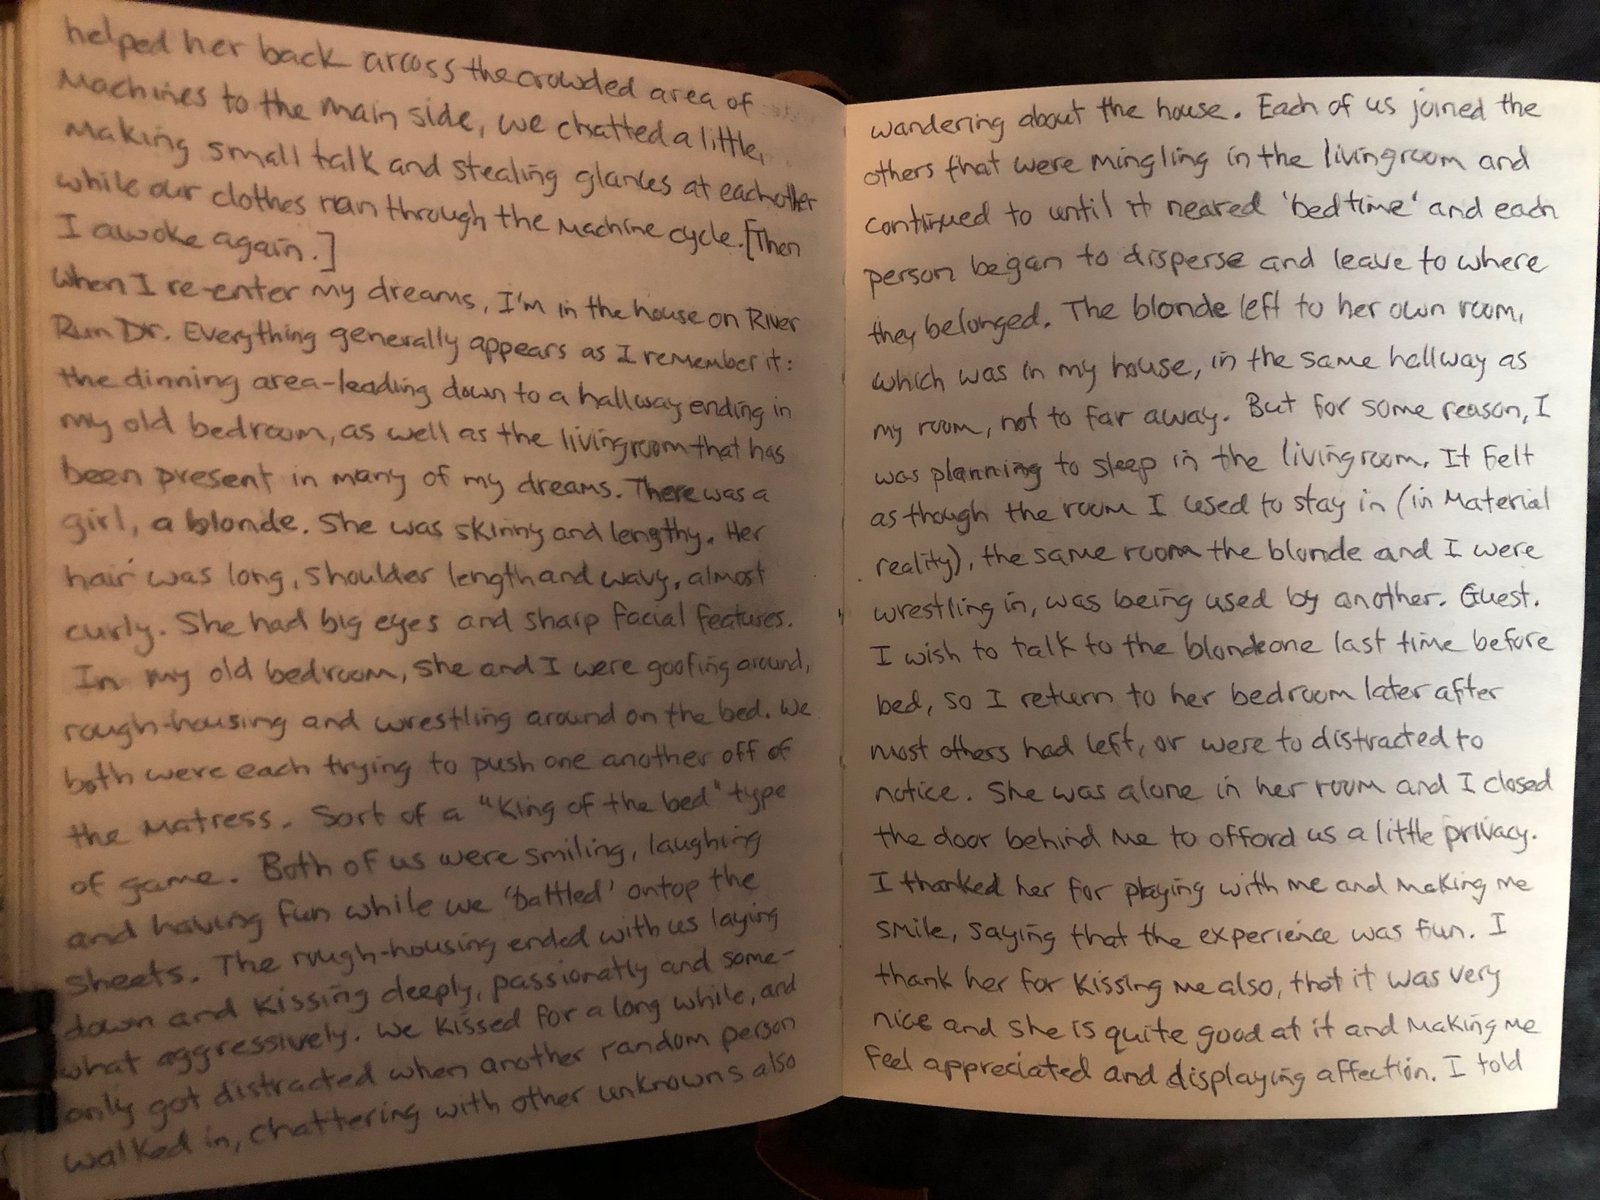 helped her back arcoss the crowded area of
Machines to the main side, we chatted a little,
Making small talk and stealing glances at eachother
while our clothes ran through the Machine cycle. [Then
I awoke again.]
When I re-enter my dreams, I'm in the house on River
Run Dr. Everything generally appears as I remember it:
the dinning area-leading down to a hallway ending in
my old bedroom, as well as the livingroom that has
been present in many of my dreams. There was a
girl, a blonde. She was skinny and lengthy. Her
hair was long, shoulder length and wavy, almost
curly. She had big eyes and sharp facial features.
In my old bedroom, she and I were goofing around,
rough-housing and wrestling around on the bed. We
both were each trying to push one another off of
the Matress. Sort of a "King of the bed" type
of game. Both of us were smiling, laughing
and having fun while we 'battled' ontop the
sheets. The rough-housing ended with us laying
down and kissing deeply, passionatly and some-
what aggressively. We kissed for a long while, and
only got distracted when another random person
walked in, chattering with other unknowns also
wandering about the house. Each of us joined the
others that were mingling in the livingroom and
continued to until it neared 'bedtime' and each
person began to disperse and leave to where
they belonged. The blonde left to her own room,
which was in my house, in the same hallway as
my room, not to far away. But for some reason, I
was planning to sleep in the livingroom. It felt
as though the room I used to stay in (in Material
reality), the same room the blonde and I were
wrestling in, was being used by another. Guest.
I wish to talk to the blonde one last time before
bed, so I return to her bedroom later after
most others had left, or were to distracted to
notice. She was alone in her room and I closed
the door behind me to offord us a little privacy.
I thanked her for playing with me and making me
smile, saying that the experience was fun. I
thank her for kissing me also, that it was very
nice and she is quite good at it and making me
feel appreciated and displaying affection. I told